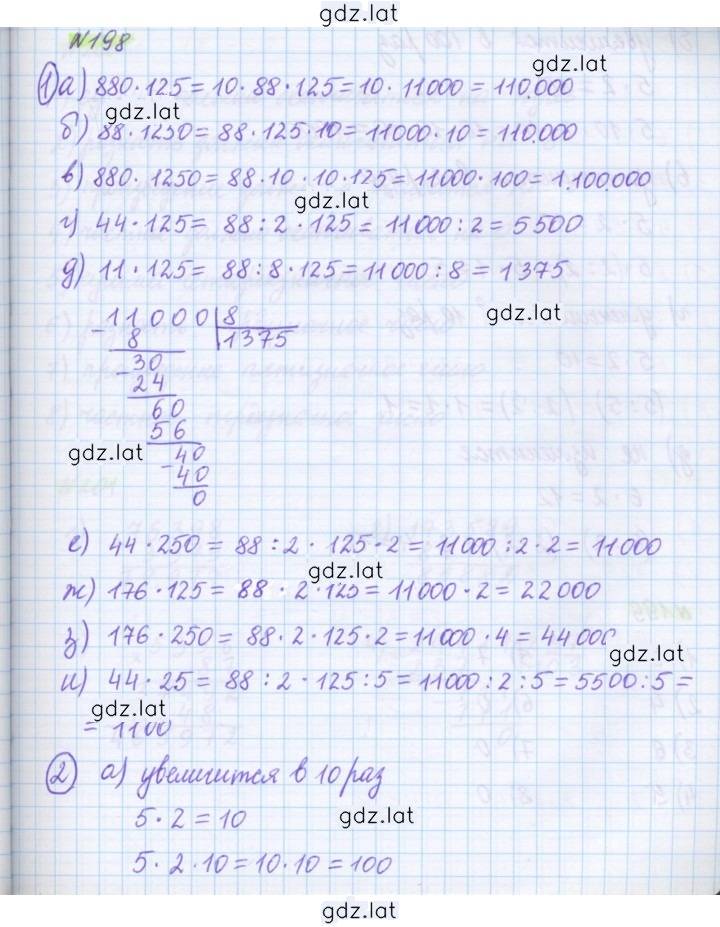 gdz.lat
№198
gdz.lat
1 а) 880·125=10·88·125=10·11000=110.000
gdz.lat
б) 88·1250=88·125·10=11000·10=110.000
в) 880·1250=88·10·10·125=11000·100=1.100.000
gdz.lat
г) 44·125= 88:2·125= 11000:2=5500
д) 11·125= 88:8·125=11000:8=1375
gdz.lat
-11000|8
8 1375
-30
24
60
56
gdz.lat
-40
40
0
е) 44·250=88:2·125·2=11000:2·2=11000
gdz.lat
ж) 176·125=88·2·125=11000·2=22000
з) 176·250=88·2·125·2=11000·4=44000
gdz.lat
и) 44·25= 88:2·125:5=11000:2:5=5500:5=
gdz.lat
= 1100
2 а) увеличится в 10 раз
5·2=10
gdz.lat
5·2·10=10·10=100
gdz.lat